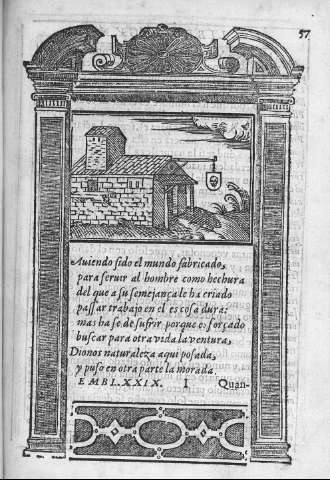 57
Auiendo sido el mundo fabricado,
para seruir al hombre como hechura
del que a su semejança le ha criado
passar trabajo en el es cosa dura:
mas ha se de sufrir porque es forçado
buscar para otra vida la ventura,
Dionos naturaleza aqui posada,
y puso en otra parte la morada.
EMBL.XXIX. I Quan-